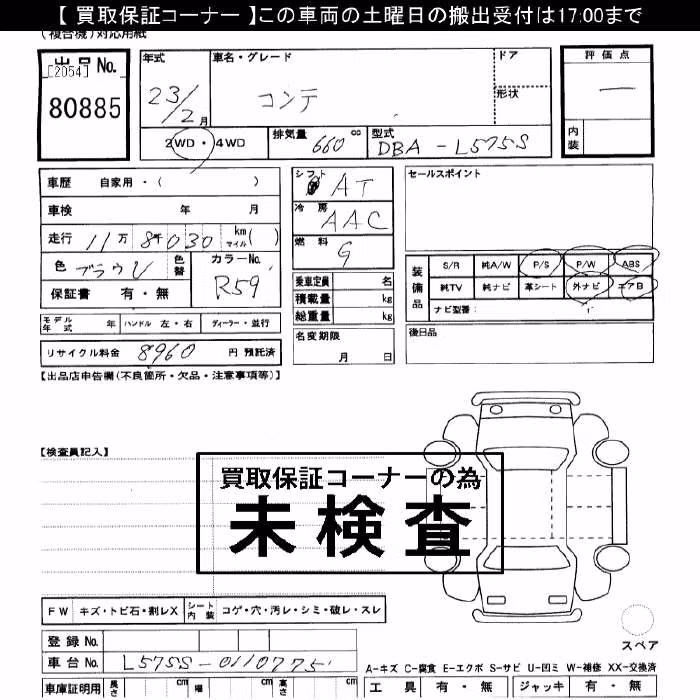 【 買取保証コーナー 】この車両の土曜日の搬出受付は17:00まで
(複合機)対応用紙
出品No.
[2054]
80885
年式
23/2月
車名・グレード
コンテ
ドア
形状
評価点
—
内装
2WD・4WD
排気量 660 cc
型式 DBA-L575S
車歴 自家用・( )
車検 年 月
走行 11万8千030 km マイル( )
色 ブラウン 色替
カラーNo. R59
保証書 有・無
モデル年式 年 ハンドル 左・右 ディーラー・並行
リサイクル料金 8960 円 預託済
シフト AT
冷房 AAC
燃料 G
乗車定員 名
積載量 kg
総重量 kg
名変期限 月 日
セールスポイント
装備品
S/R 純A/W P/S P/W ABS
純TV 純ナビ 革シート 外ナビ エアB
ナビ型番:
後日品
【出品店申告欄(不良箇所・欠品・注意事項等)】
【検査員記入】
買取保証コーナーの為
未検査
FW キズ・トビ石・割レX シート内装 コゲ・穴・汚レ・シミ・破レ・スレ
登録No.
車台No. L575S-0110775
車庫証明用 長さ cm 幅 cm 高さ cm
スペア
A-キズ C-腐食 E-エクボ S-サビ U-凹ミ W-補修 XX-交換済
工具 有・無 ジャッキ 有・無